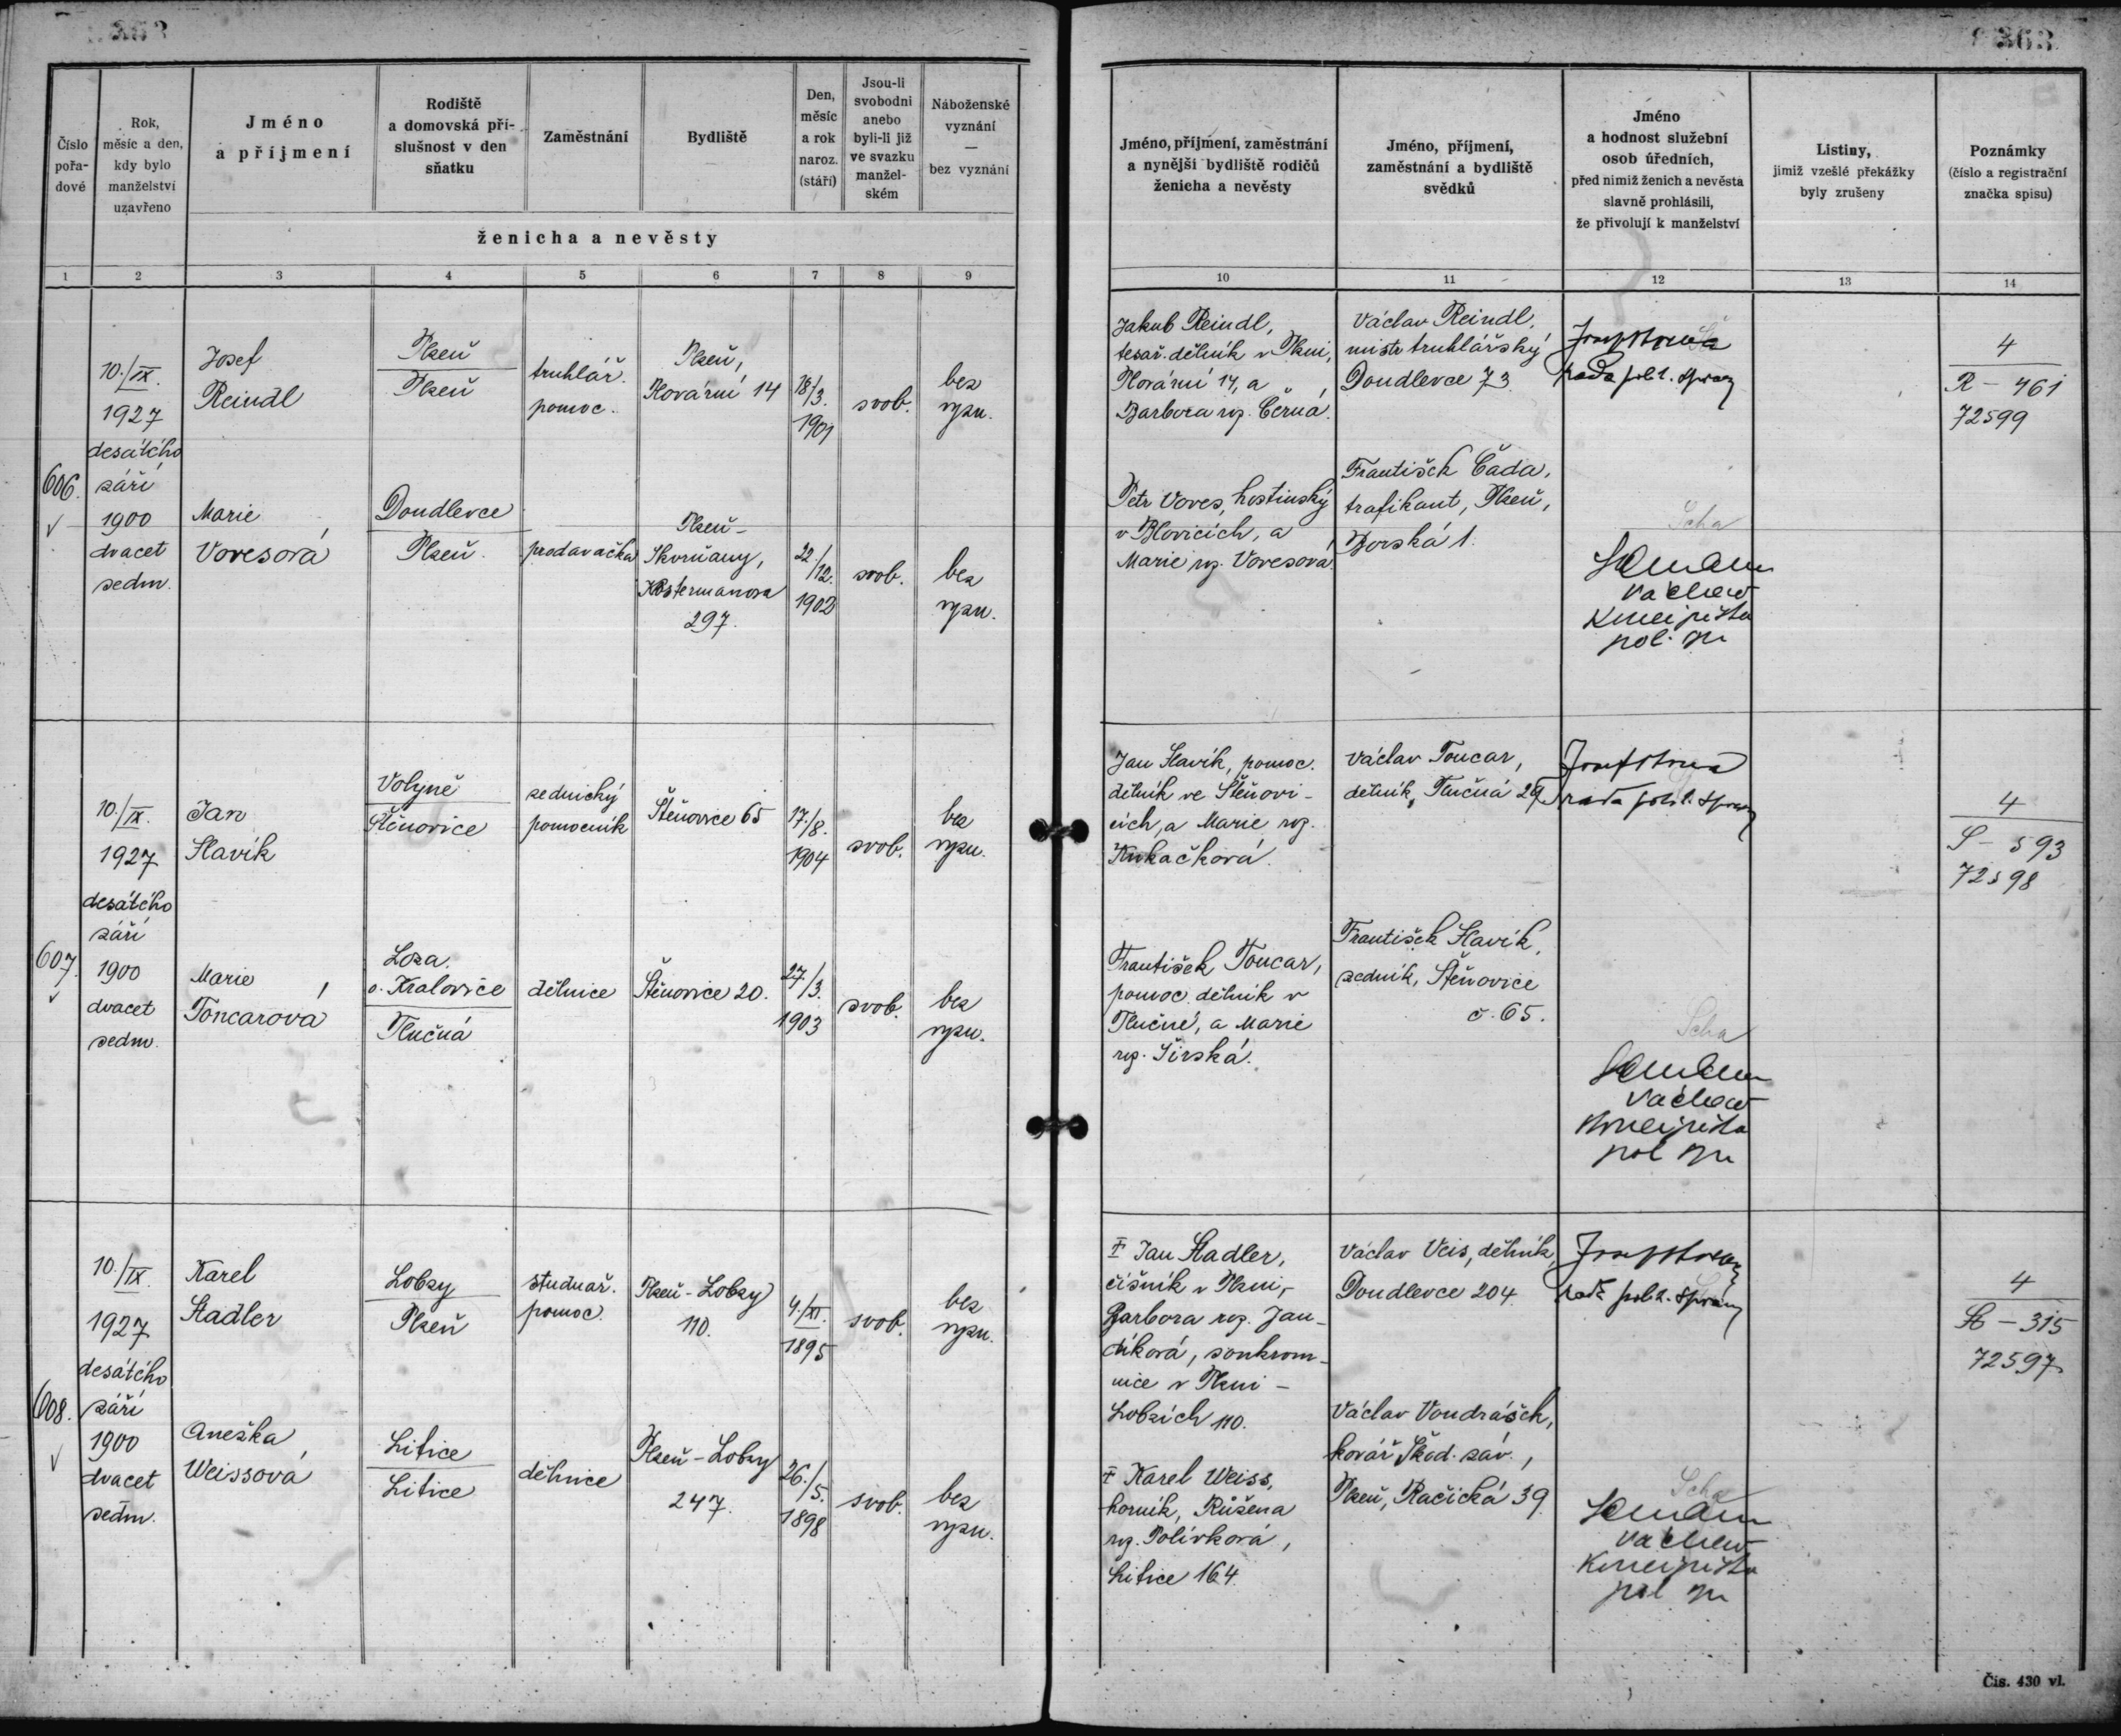 363
Číslo pořa-dové
Rok, měsíc a den, kdy bylo manželství uzavřeno
Jméno a příjmení
Rodiště a domovská pří-slušnost v den sňatku
Zaměstnání
Bydliště
Den, měsíc a rok naroz. (stáří)
Jsou-li svobodni anebo byli-li již ve svazku manžel-ském
Náboženské vyznání — bez vyznání
ženicha a nevěsty
1 2 3 4 5 6 7 8 9
Jméno, příjmení, zaměstnání a nynější bydliště rodičů ženicha a nevěsty
Jméno, příjmení, zaměstnání a bydliště svědků
Jméno a hodnost služební osob úředních, před nimiž ženich a nevěsta slavně prohlásili, že přivolují k manželství
Listiny, jimiž vzešlé překážky byly zrušeny
Poznámky (číslo a registrační značka spisu)
10 11 12 13 14
606.
10./IX.
1927
desátého
září
1900
dvacet
sedm.
Josef
Reindl
Plzeň
Plzeň
truhlář.
pomoc.
Plzeň,
Kovární 14
18./3.
1901
svob.
bez
vyzn.
Marie
Voresová
Doudlevce
Plzeň.
prodavačka
Plzeň-
Skvrňany,
297.
22./12.
1902
svob.
bez
vyzn.
Jakub Reindl,
tesař. dělník v Plzni,
Kovární 14, a
Barbora roz. Černá.
Petr Voves, hostinský
v Blovicích, a
Marie roz. Vovesová
Václav Reindl,
mistr truhlářský
Doudlevce 73
František Čada,
trafikant, Plzeň,
Borská 1.
rada pol. správy
Scha
Václav
pol.
4
R - 461
72599
607.
10./IX.
1927
desátého
září
1900
dvacet
sedm.
Jan
Slavík
Volyně
Štěnovice
zednický
pomocník
Štěnovice 65
17./8.
1904
svob.
bez
vyzn.
Marie
Toncarová
Loza
o. Kralovice
Tlučná
dělnice
Štěnovice 20.
27./3.
1903
svob.
bez
vyzn.
Jan Slavík, pomoc.
dělník ve Štěnovi-
cích, a Marie roz.
Kukačková.
František Toncar,
pomoc. dělník v
Tlučné, a Marie
roz. Jirská.
Václav Toncar,
dělník, Tlučná 29
František Slavík,
zedník, Štěnovice
č. 65.
rada pol. správy
Scha
Václav
pol.
4
S - 593
72598
608.
10./IX.
1927
desátého
září
1900
dvacet
sedm.
Karel
Stadler
Lobzy
Plzeň
studnař.
pomoc.
Plzeň-Lobzy
110.
4./XI.
1895
svob.
bez
vyzn.
Anežka
Weissová
Litice
Litice
dělnice
Plzeň-Lobzy
247.
26./5.
1898
svob.
bez
vyzn.
† Jan Stadler,
číšník v Plzni,
Barbora roz. Jan-
díková, soukrom-
nice v Plzni-
Lobzích 110.
† Karel Weiss,
horník, Růžena
roz. Polívková,
Litice 164.
Václav Veis, dělník,
Doudlevce 204
Václav Vondrášek,
kovář Škod. záv.,
Plzeň, Račická 39.
rada pol. správy
Scha
Václav
pol.
4
St - 315
72597
Čís. 430 vl.